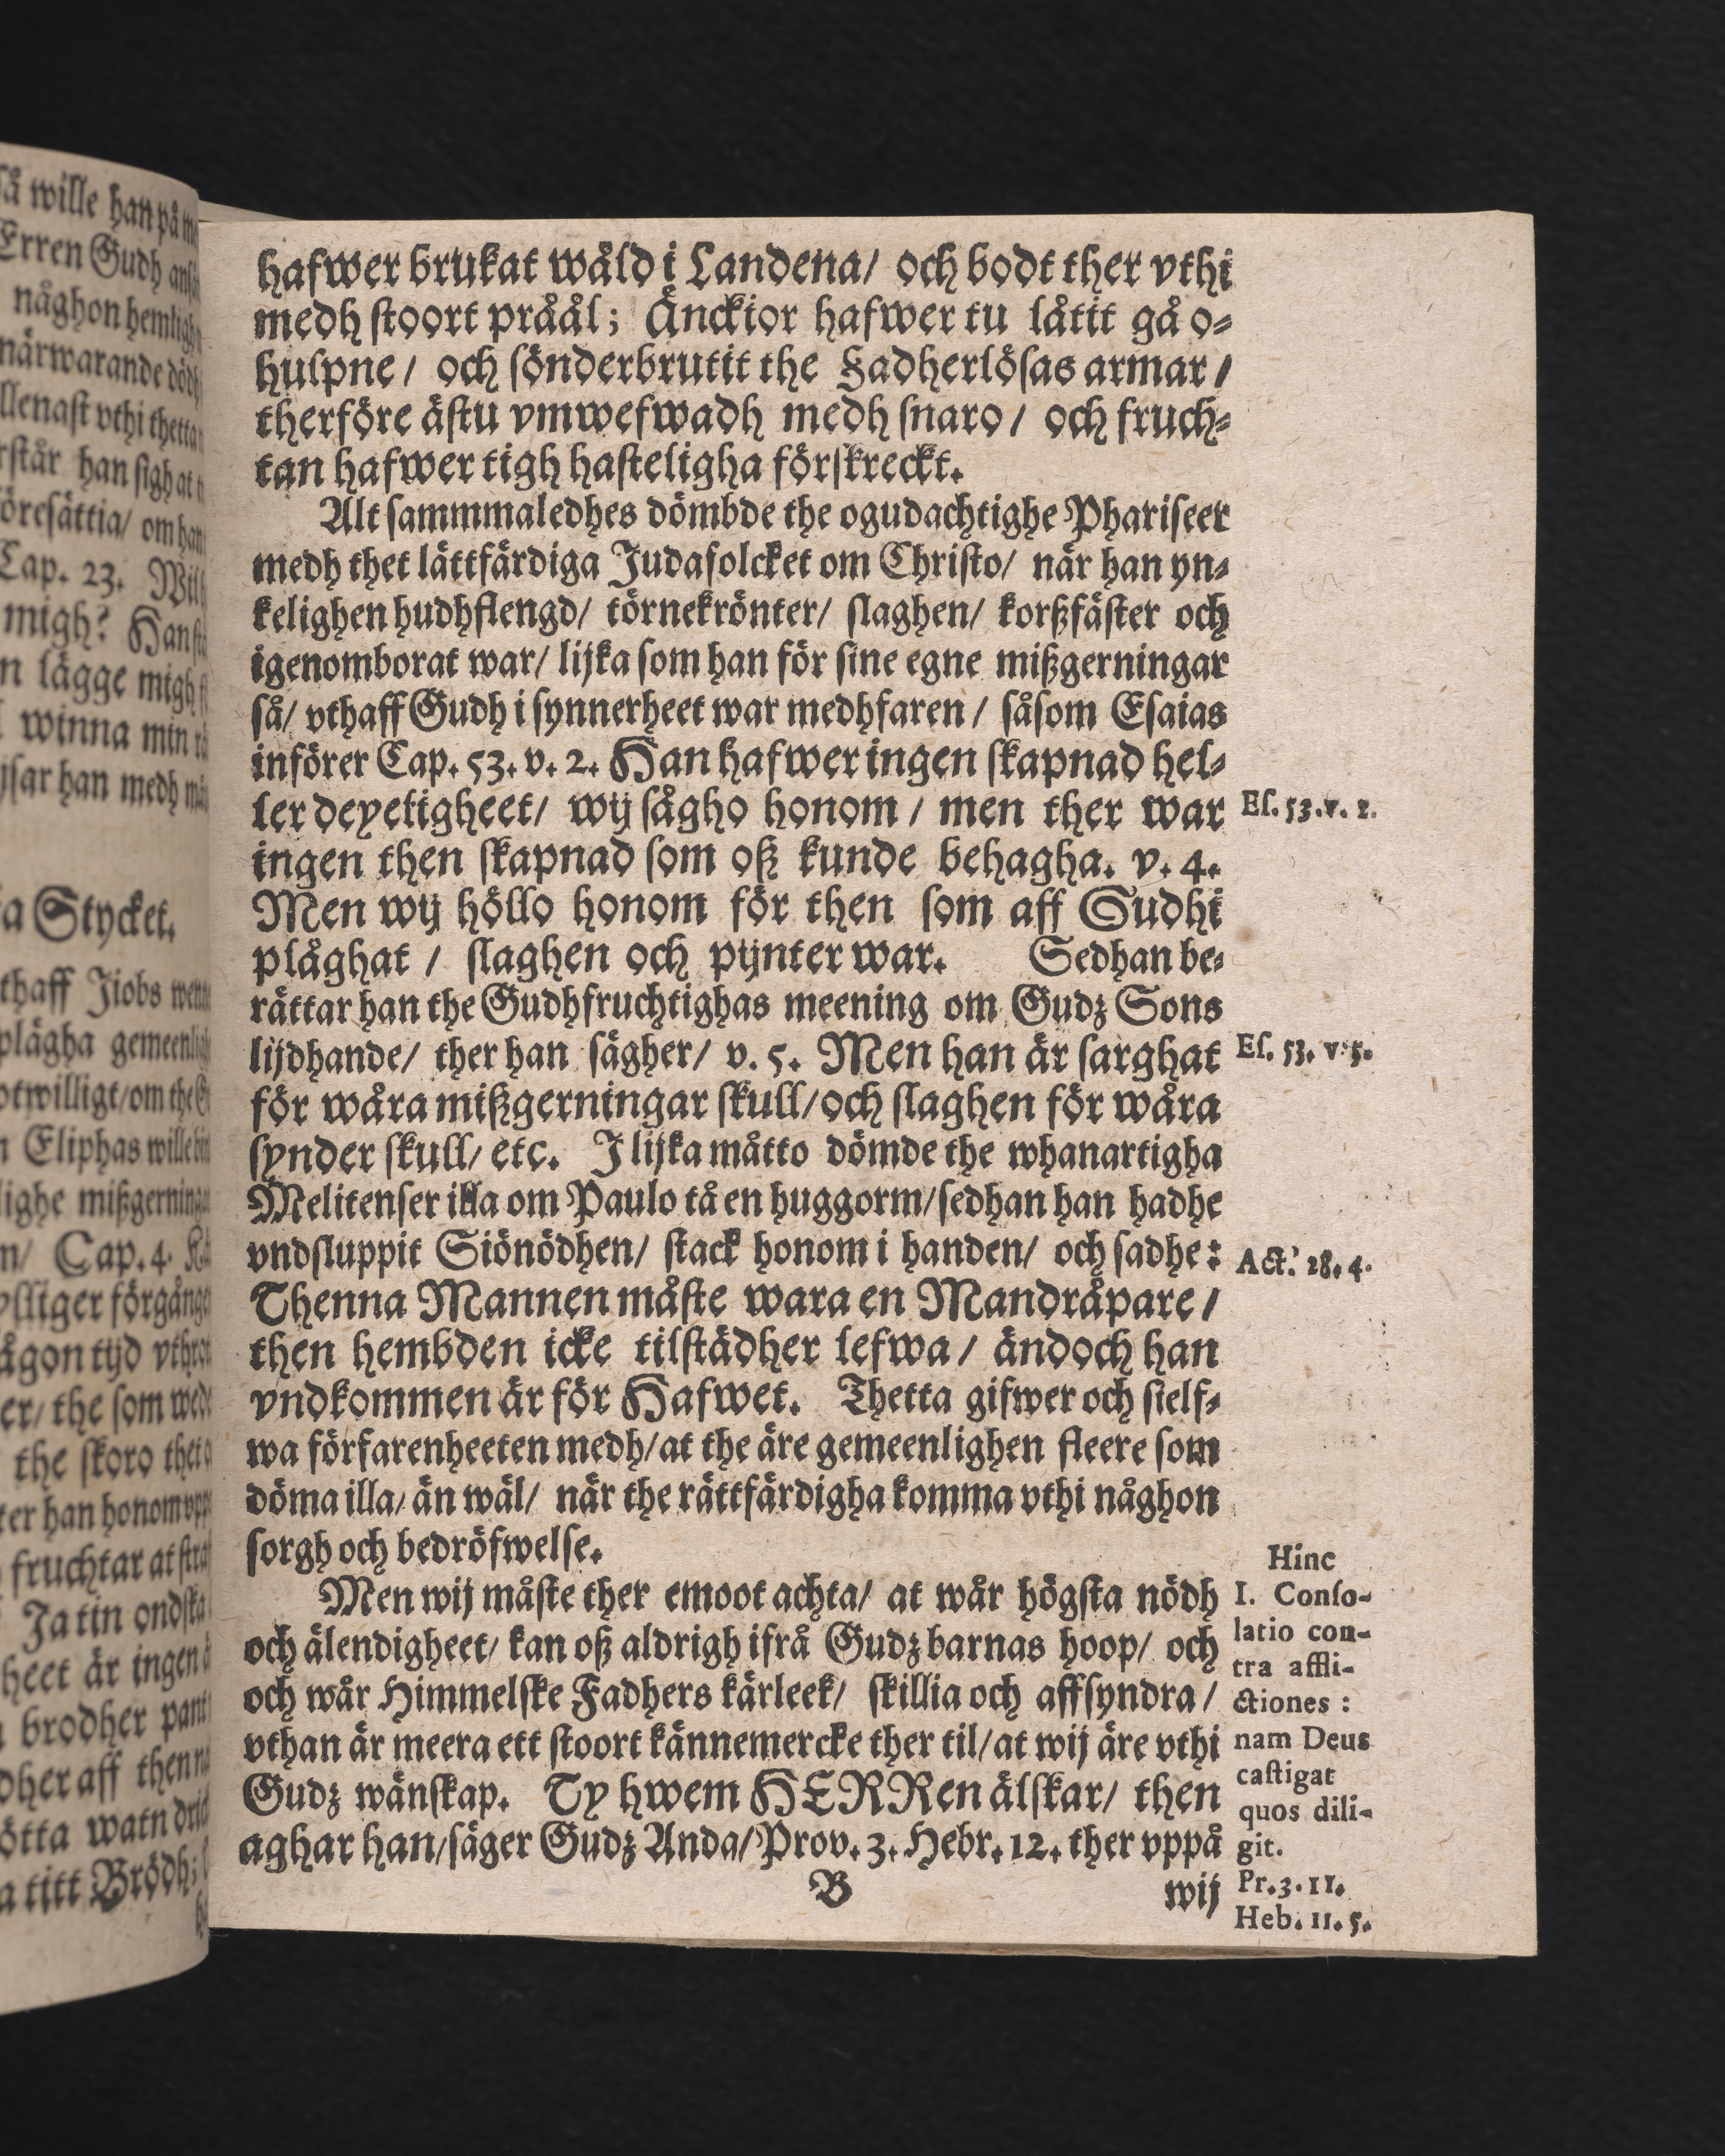 så wille han på
Erren Gudh
någhon
närwarande
llenast vthi thetta
rstår han sigh at
öresättia/ om han
Cap. 23.
migh? Han
n lägge migh
winna min
sar han medh
a Stycket.
thaff Jiobs
plägha
otwilligt/om the
n Eliphas
lighe
n/ Cap. 4.
ylliger
ågon tijd
er/ the som
the skoro thet
ter han honom
fruchtar at
Ja tin ondska
heet är ingen
brodher
dher aff then
ötta watn
a titt Brödh;
hafwer brukat wåld i Landena/ och bodt ther vthi
medh stoort pråål; Änckior hafwer tu låtit gå o-
hulpne/ och sönderbrutit the Fadherlösas armar/
therföre ästu vmwefwadh medh snaro/ och fruch-
tan hafwer tigh hasteligha förskreckt.
Alt sammmaledhes dömbde the ogudachtighe Phariseer
medh thet lättfärdiga Judafolcket om Christo/ när han yn-
kelighen hudhflengd/ törnekrönter/ slaghen/ korßfäster och
igenomborat war/ lijka som han för sine egne mißgerningar
så/ vthaff Gudh i synnerheet war medhfaren/ såsom Esaias
införer Cap. 53. v. 2. Han hafwer ingen skapnad hel-
ler deyeligheet/ wij sågho honom/ men ther war
ingen then skapnad som oß kunde behagha. v. 4.
Men wij höllo honom för then som aff Gudhi
plåghat/ slaghen och pijnter war. Sedhan be-
rättar han the Gudhfruchtighas meening om Gudz Sons
lijdhande/ ther han sägher/ v. 5. Men han är sarghat
för wåra mißgerningar skull/och slaghen för wåra
synder skull/ etc. J lijka måtto dömde the whanartigha
Melitenser illa om Paulo tå en huggorm/sedhan han hadhe
vndsluppit Siönödhen/ stack honom i handen/ och sadhe:
Thenna Mannen måste wara en Mandråpare/
then hembden icke tilstädher lefwa/ ändoch han
vndkommen är för Hafwet. Thetta gifwer och sielf-
wa förfarenheeten medh/at the äre gemeenlighen fleere som
döma illa/ än wäl/ när the rättfärdigha komma vthi någhon
sorgh och bedröfwelse.
Men wij måste ther emoot achta/ at wår högsta nödh
och älendigheet/ kan oß aldrigh ifrå Gudz barnas hoop/ och
och wår Himmelske Fadhers kärleek/ skillia och affsyndra/
vthan är meera ett stoort kännemercke ther til/at wij äre vthi
Gudz wänskap. Ty hwem HERRen älskar/ then
aghar han/säger Gudz Anda/Prov. 3. Hebr. 12. ther vppå
B
wij
Es. 53. v. 2.
Es. 53. v. 5.
Act. 28. 4.
Hinc
I. Conso-
latio con-
tra affli-
ctiones:
nam Deus
castigat
quos dili-
git.
Pr. 3. 11.
Heb. 11. 5.